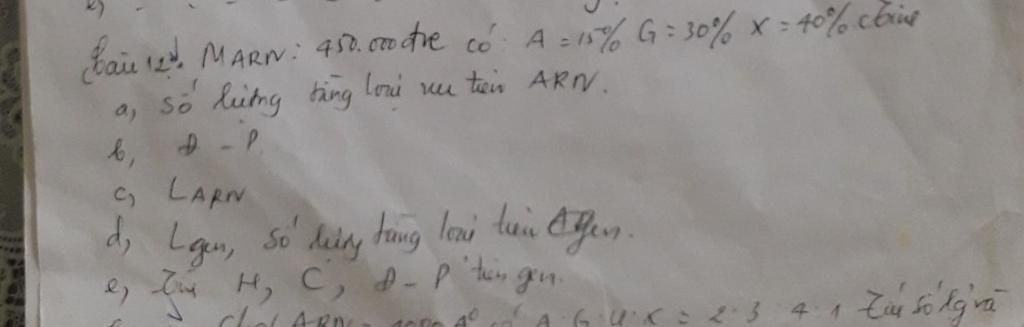 Câu 12: MARN: 450.000 đvc có: A = 15% G = 30% X = 40%
a, Số lượng từng loại nu trên ARN.
b, Đ - P.
c, LARN
d, Lgen, số lượng từng loại trên gen.
e, H, C, Đ - P trên gen.
ARN A G U X = 2 3 4 1 số